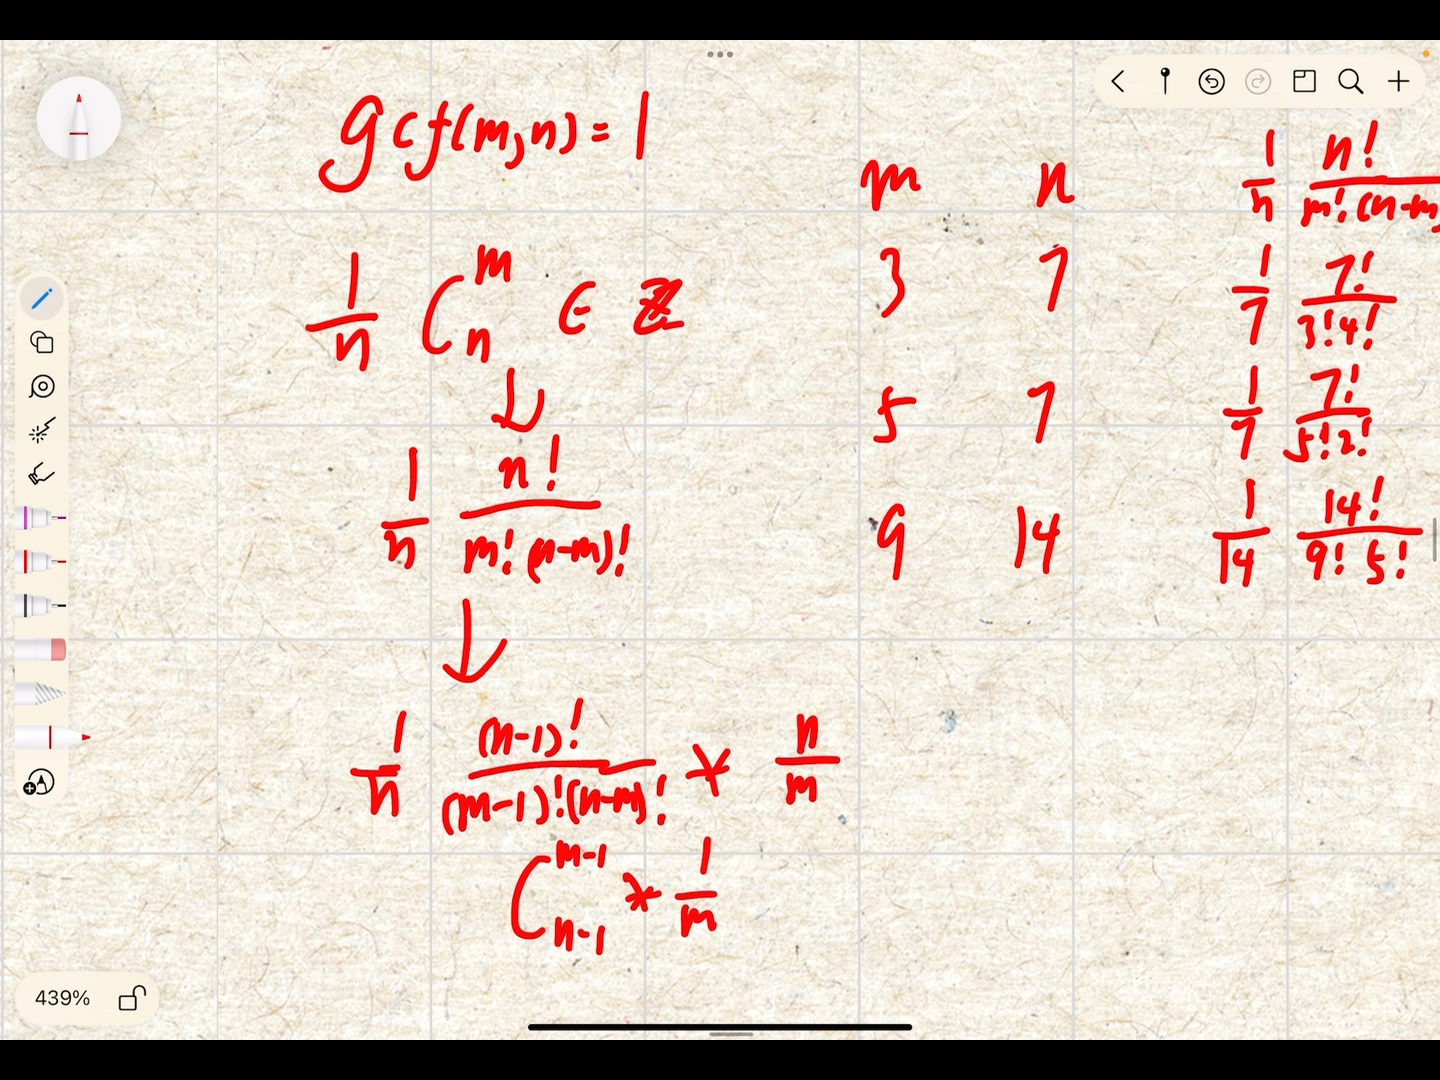 gcf(m,n)=1
1/n C_n^m ∈ ℤ
↓
1/n n!/(m!(n-m)!)
↓
1/n (n-1)!/((m-1)!(n-m)!) * n/m
C_{n-1}^{m-1} * 1/m
m n 1/n n!/(m!(n-m)
3 7 1/7 7!/(3!4!)
5 7 1/7 7!/(5!2!)
9 14 1/14 14!/(9! 5!)
439%